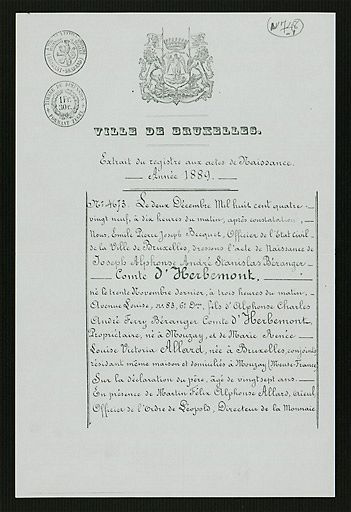 VILLE DE BRUXELLES.
Extrait du registre aux actes de Naissance.
Année 1889.
No. 4673. Le deux Décembre Mil huit cent quatre-
vingt neuf, à dix heures du matin, après constatation,
Nous, Emile Pierre Joseph Becquet, Officier de l'Etat Civil
de la Ville de Bruxelles, dressons l'acte de Naissance de
Joseph Alphonse André Stanislas Béranger
Comte d'Herbemont,
né le trente Novembre dernier, à trois heures du matin,
Avenue Louise, no. 83, 6e Don, fils d'Alphonse Charles
André Ferry Béranger Comte d'Herbemont
Propriétaire, né à Mouzay, et de Marie Renée
Louise Victoria Allard, née à Bruxelles, conjoints
résidant même maison et domiciliés à Mouzay (Meuse-France)
Sur la déclaration du père, âgé de vingt sept ans.
En présence de Martin Félix Alphonse Allard, aïeul,
Officier de l'Ordre de Léopold, Directeur de la Monnaie